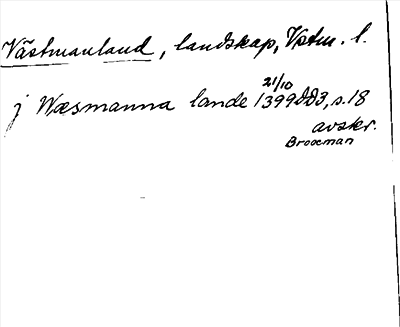 Västmanland, landskap, Vstm. l.
21/10
j Wæsmanna lande 1399 DD3, s. 18
avskr.
Brooeman